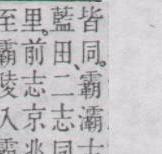 皆同。霸灞
藍田、二志同
里。前志京兆
至霸陵入霸